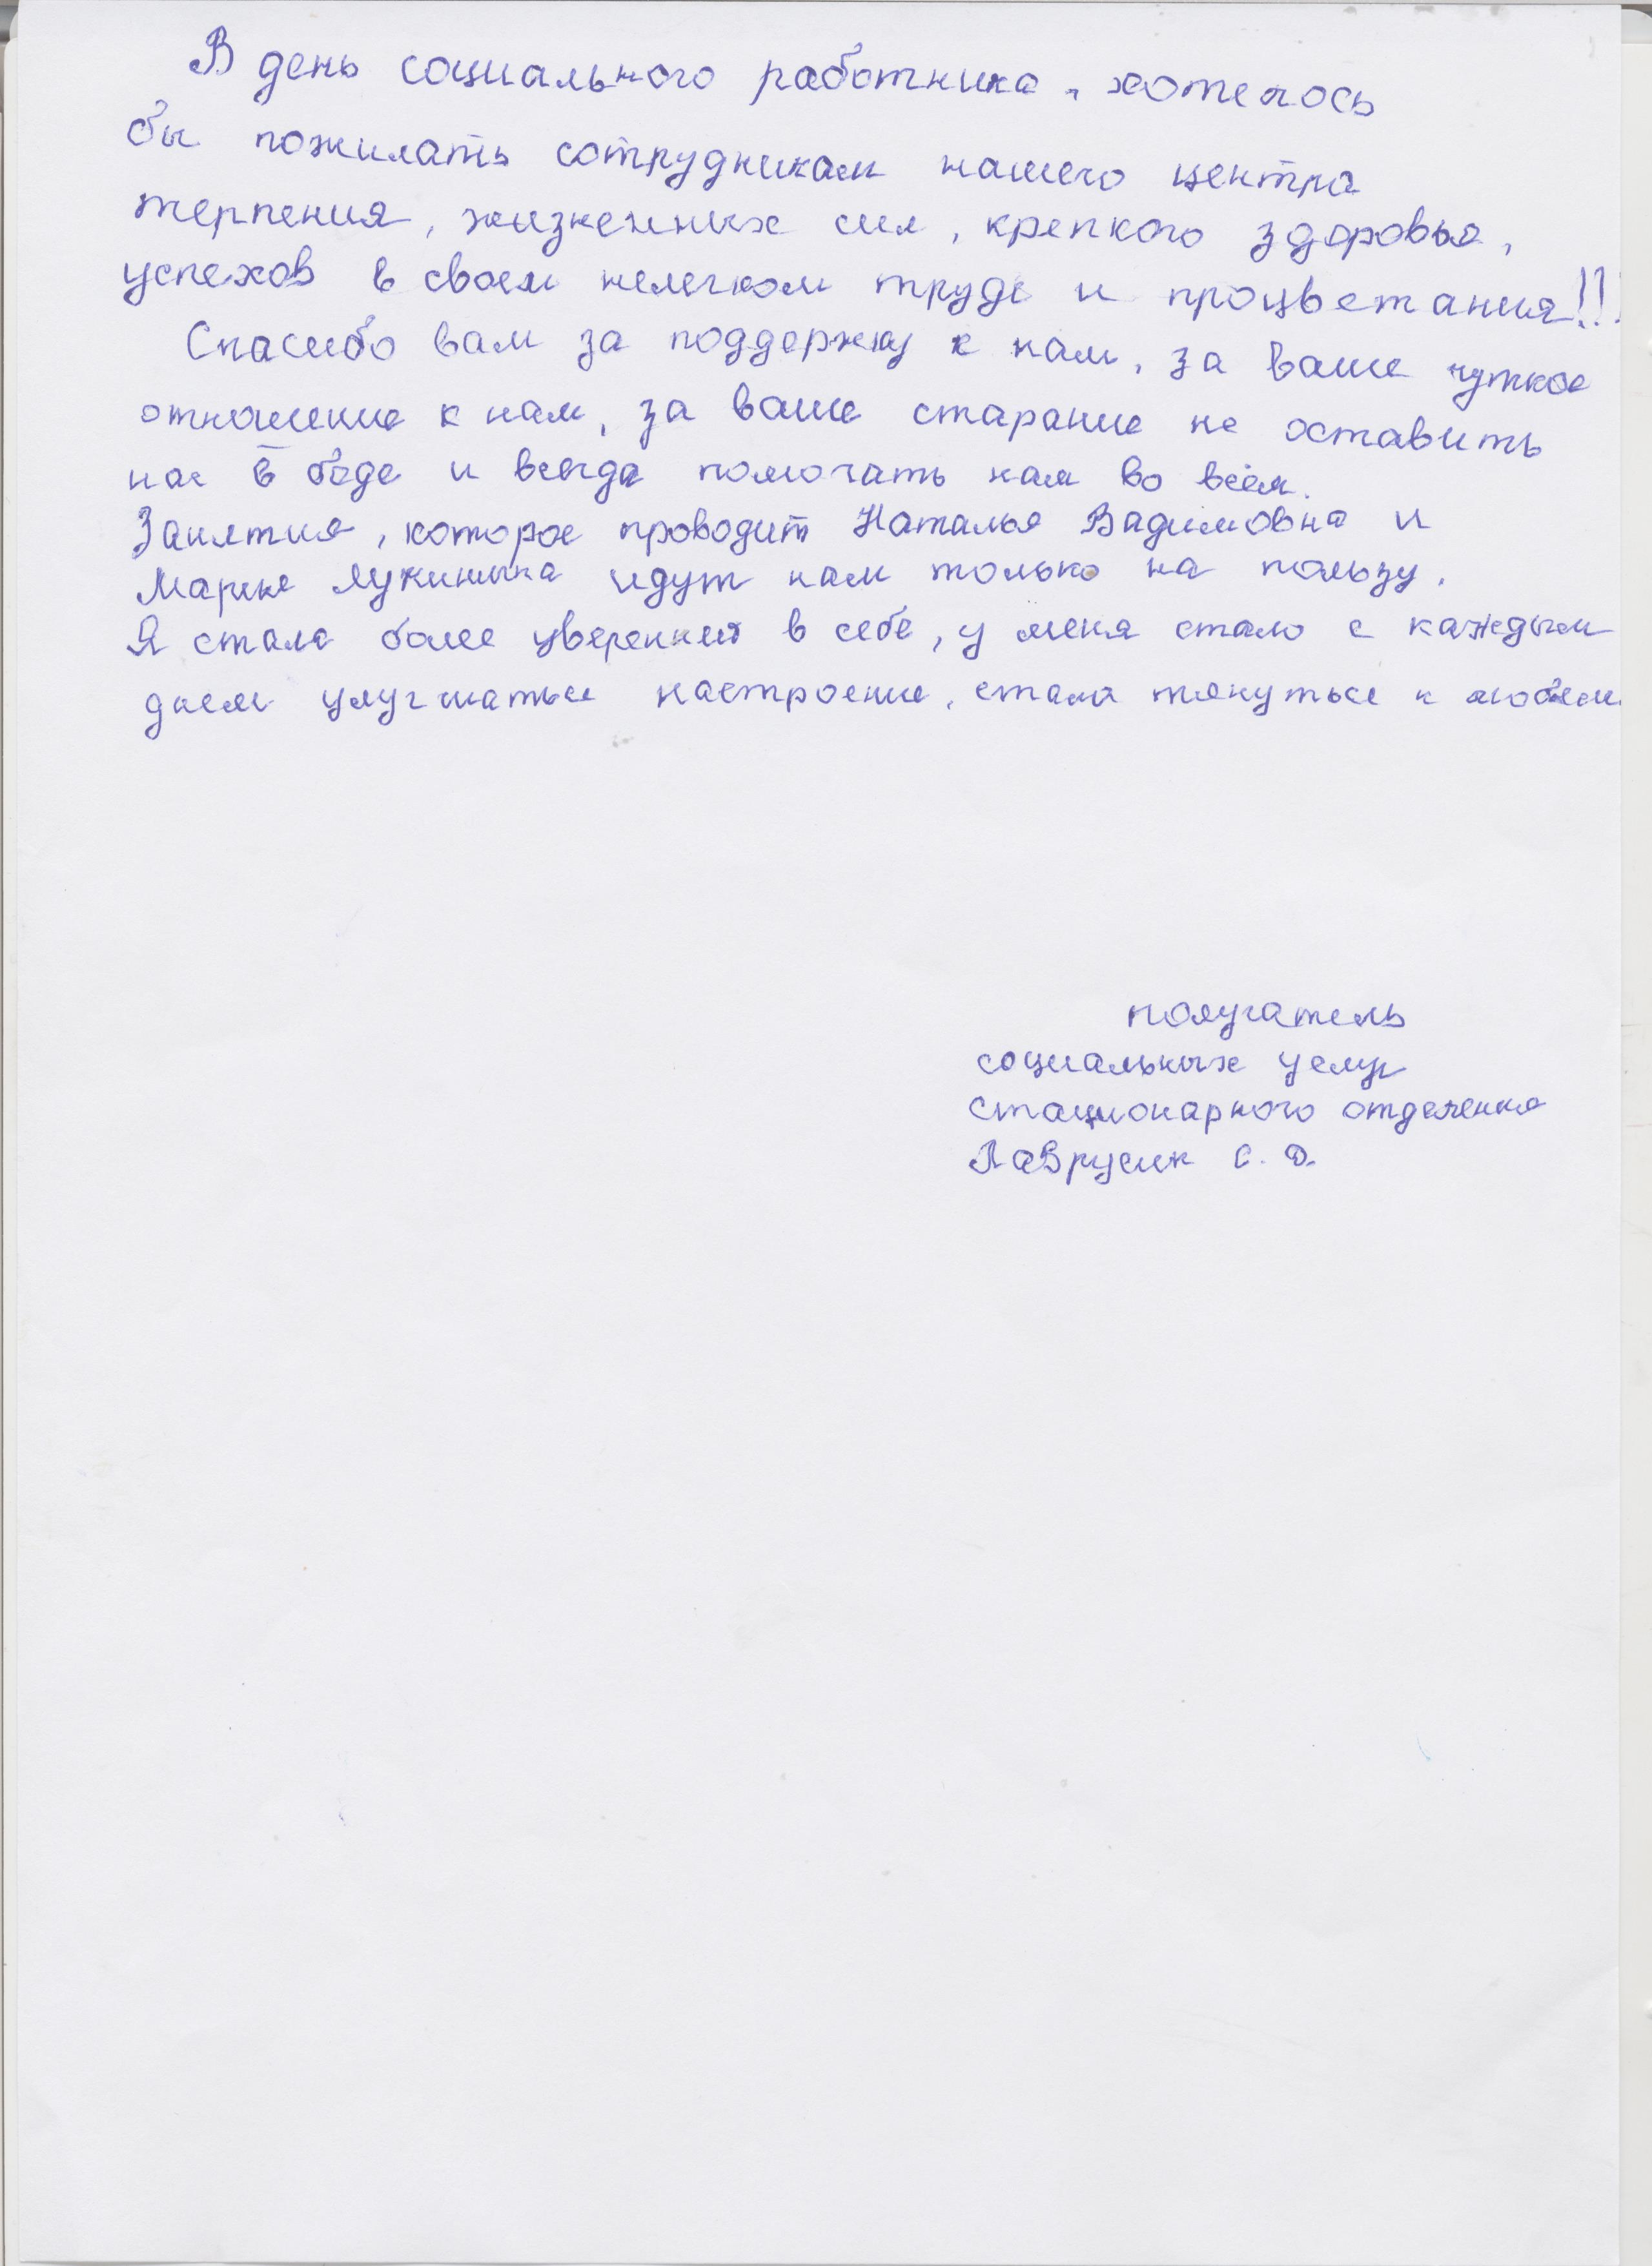 В день социального работника, хотелось
бы пожилать сотрудникам нашего центра
терпения, жизненных сил, крепкого здоровья,
успехов в своем нелегком труде и процветания!!!
Спасибо вам за поддержку к нам, за ваше чуткое
отношение к нам, за ваше старание не оставить
нас в беде и всегда помогать нам во всём.
Занятия, которое проводит Наталья Вадимовна и
Марина Лукинична идут нам только на пользу.
Я стала более уверенней в себе, у меня стало с каждым
днем улучшаться настроение, стала тянуться к людям.
получатель
социальных услуг
стационарного отделения
Лаврусик С. Д.